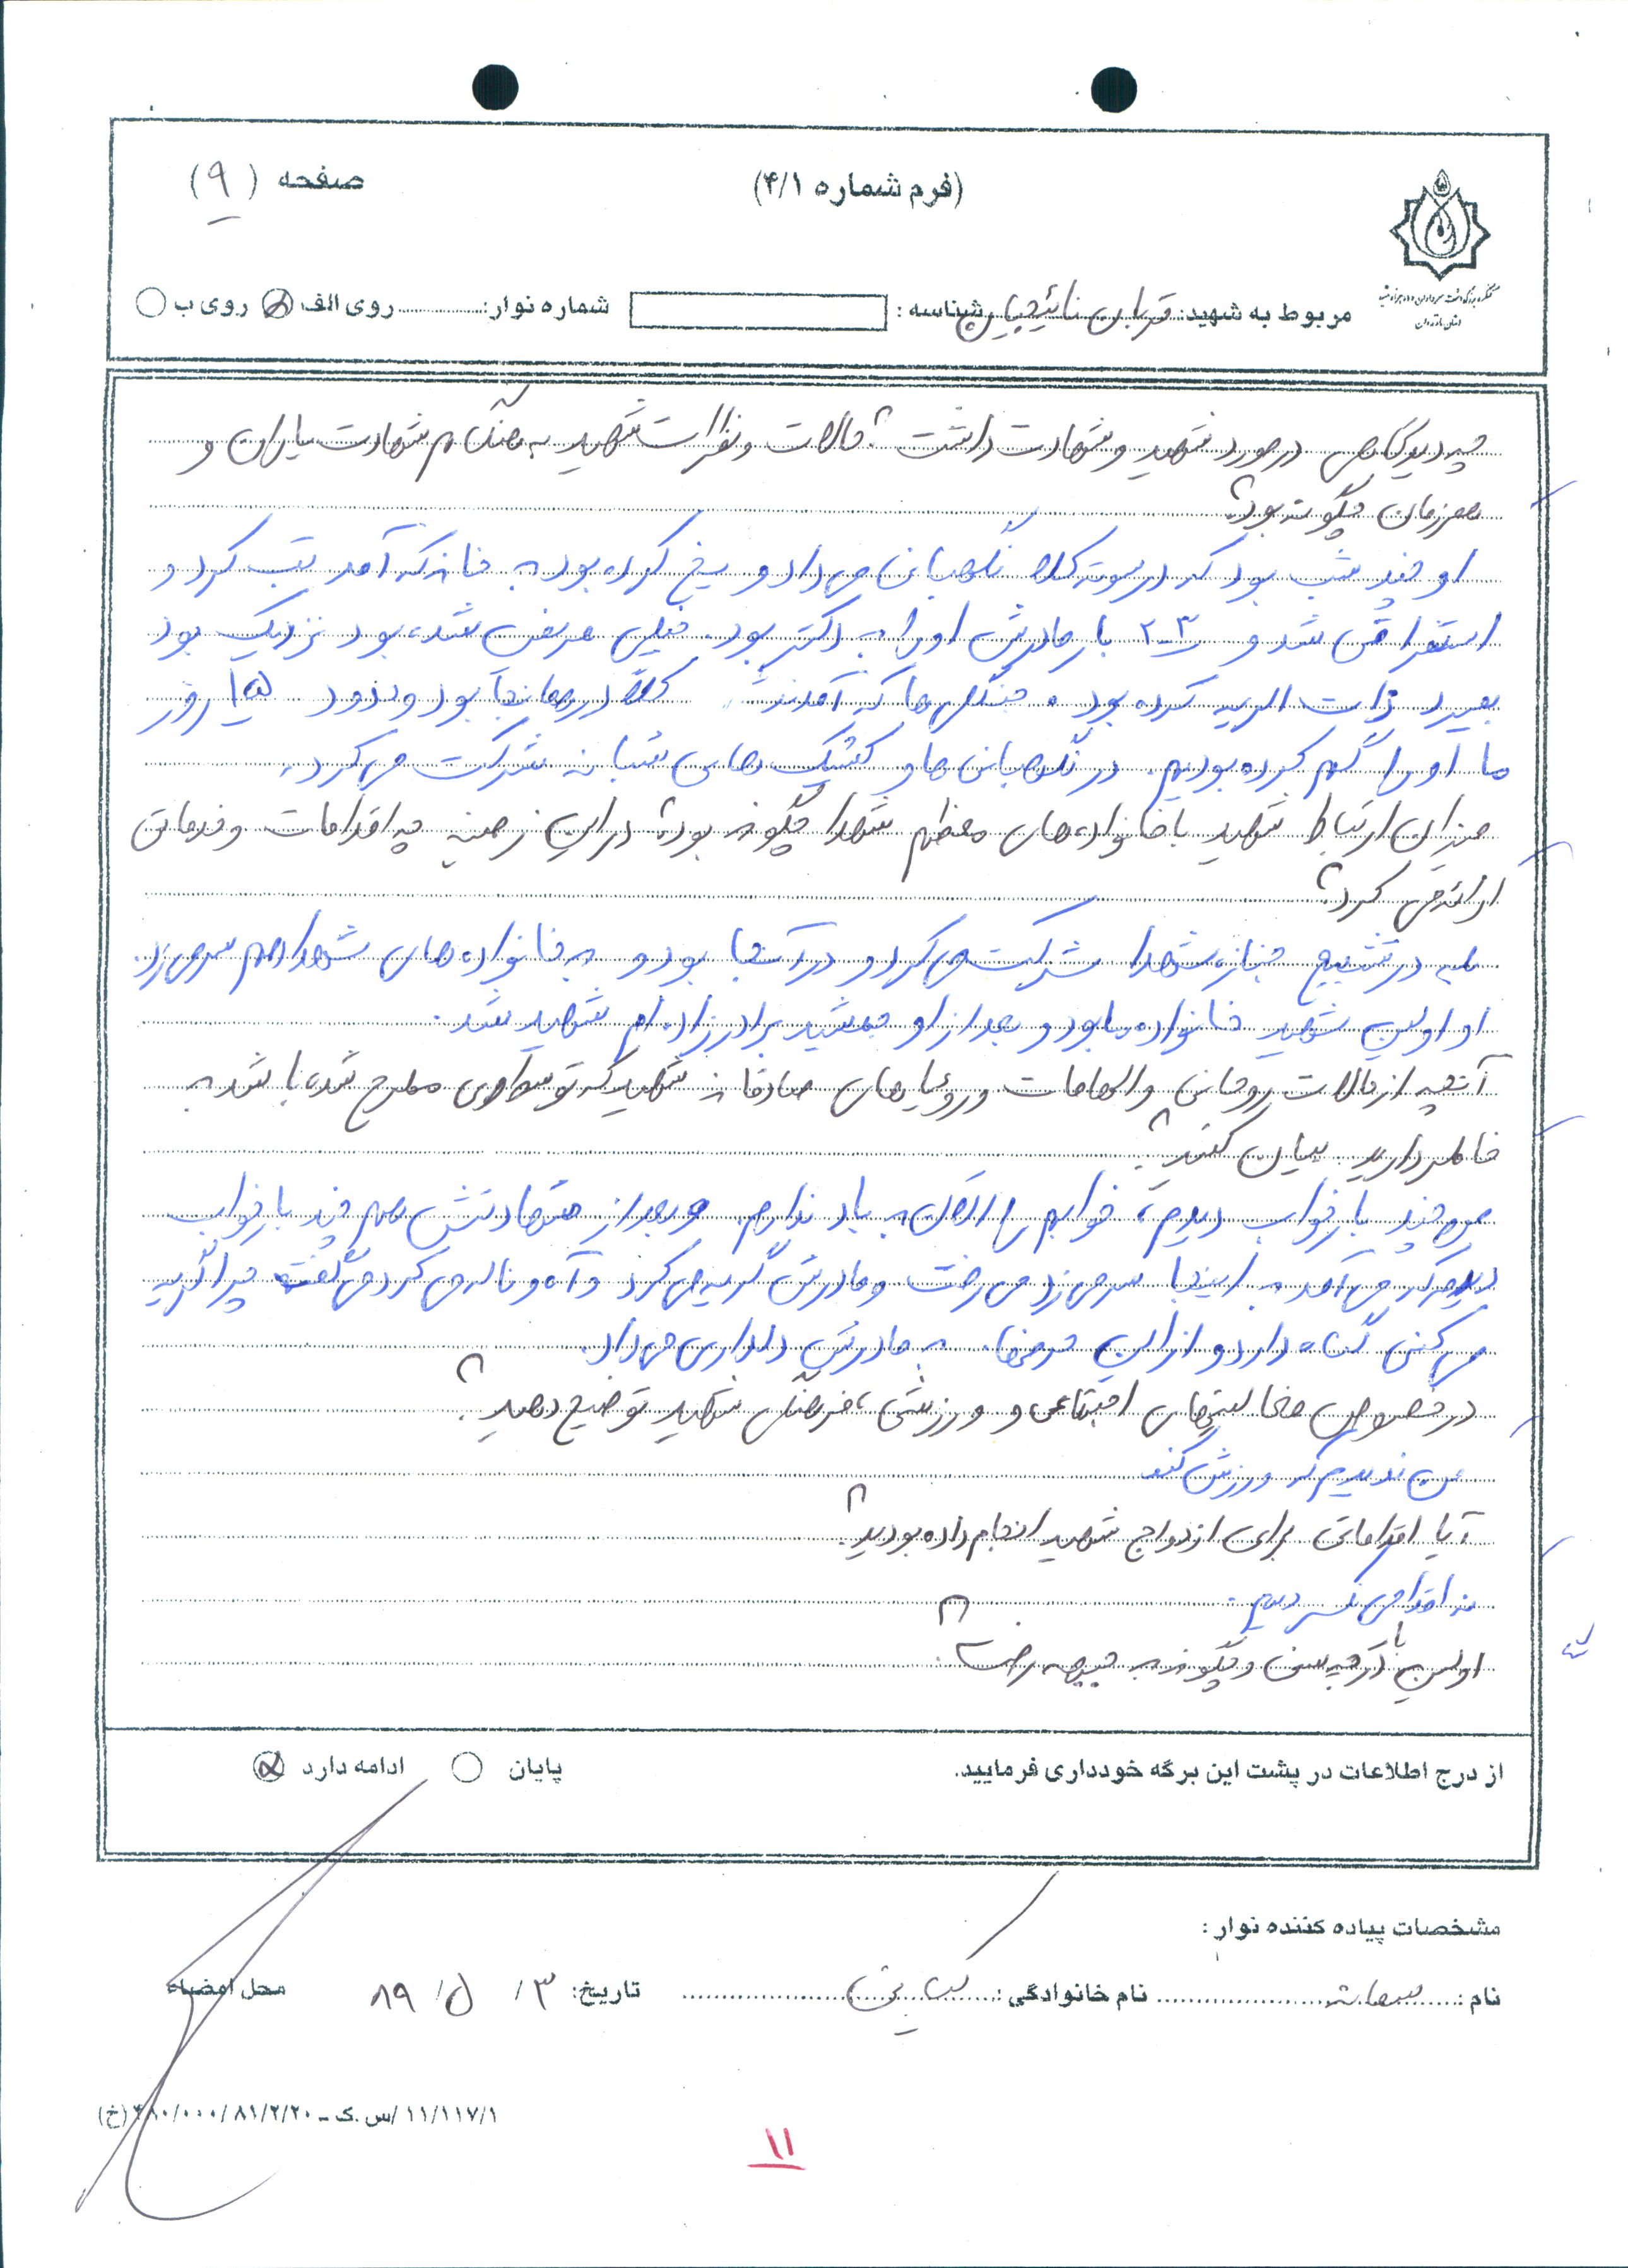 (فرم شماره ۴/۱)
صفحه (۹)
کنگره بزرگداشت سرداران و ده هزار شهید
استان مازندران
مربوط به شهید: قربان نائیجیان شناسه: شماره نوار: روی الف روی ب
چه دیدگاهی در مورد شهید و شهادت داشت؟ حالات و نظرات شهید به هنگام شهادت یاران و
همرزمان چگونه بود؟
او چند شب بود که در سوته کلا نگهبانی می داد و یخ کرده بود به خانه که آمد تب کرد و
استفراقی شد و ۳-۲ بار مادرش او را به دکتر بود. خیلی مریض شده بود نزدیک بود
بمیرد ذات الریه کرده بود. جنگلی ها که آمدند کلاً در همانجا بود و حدود ۱۵ روز
ما او را گم کرده بودیم. در نگهبانی ها و کشیک های شبانه شرکت می کرد.
میزان ارتباط شهید با خانواده های معظم شهدا چگونه بود؟ در این زمینه چه اقدامات و خدماتی
ارائه می کرد؟
بله در تشییع جنازه شهدا شرکت می کرد و در آنجا بود و به خانواده های شهدا هم سر می زد.
او اولین شهید خانواده ما بود و بعد از او جمشید برادرزاده ام شهید شد.
آنچه از حالات روحانی و الهامات و رؤیاهای صادقانه شهید که توسط وی مطرح شده باشد به
خاطر دارید بیان کنید؟
چند بار خواب دیدم، خوابم را الان به یاد ندارم. و بعد از شهادتش هم چند بار خواب
دیدم که می آمد به اینجا سر می زد می رفت و مادرش گریه می کرد و آه و ناله می کرد می گفت چرا گریه
می کنی گناه دارد و از این حرفها. به مادرش دلداری می داد.
در خصوص فعالیتهای اجتماعی و ورزشی، فرهنگی شهید توضیح دهید؟
من ندیدم که ورزش کند
آیا اقداماتی برای ازدواج شهید انجام داده بودید؟
نه اقدامی نکردیم.
اولین بار در چه سنی و چگونه به جبهه رفت؟
از درج اطلاعات در پشت این برگه خودداری فرمایید. پایان ادامه دارد
مشخصات پیاده کننده نوار:
نام: نام خانوادگی: تاریخ: ۳ / ۵ / ۸۹ محل امضاء
۱۱/۱۱۷/۱ /س.ک - ۸۱/۲/۲۰ /۰۰۰/ ۴۸۰ (خ)
۱۱